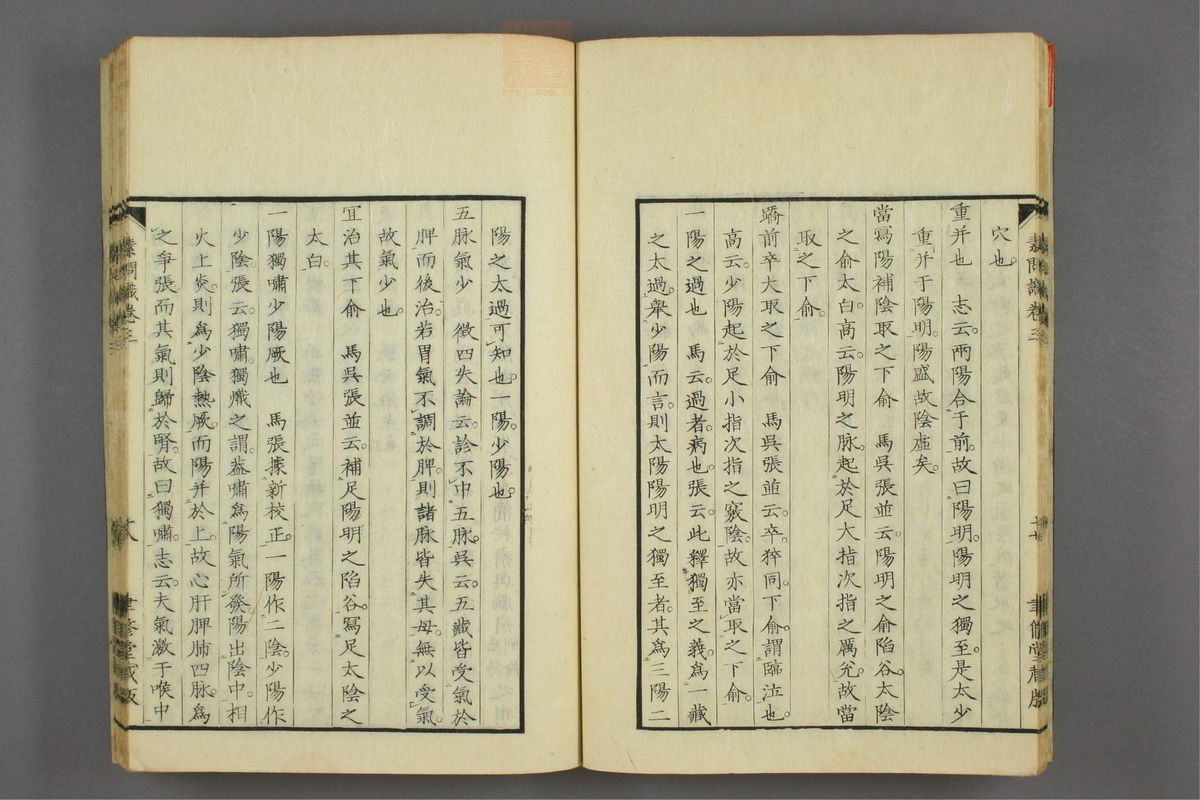 穴也。
重并也　志云。兩陽合于前。故曰陽明。陽明之獨至。是太少
重并于陽明。陽盛故陰虛矣。
當寫陽補陰取之下俞　馬吳張並云。陽明之俞陷谷。太陰
之俞太白。高云。陽明之脉。起於足大指次指之厲兌。故當
取之下俞。
蹻前卒大取之下俞　馬吳張並云。卒猝同。下俞。謂臨泣也。
高云。少陽起於足小指次指之竅陰。故亦當取之下俞。
一陽之過也　馬云。過者。病也。張云。此釋獨至之義。爲一藏
之太過。舉少陽而言。則太陽陽明之獨至者。其爲三陽二
素問識卷三
聿修堂藏版
陽之太過可知也。一陽。少陽也。
五脉氣少　徵四失論云。診不中五脉。吳云。五藏皆受氣於
脾而後治。若胃氣不調於脾。則諸脉皆失其母。無以受氣。
故氣少也。
宜治其下俞　馬吳張並云。補足陽明之陷谷。寫足太陰之
太白。
一陽獨嘯少陽厥也　馬張據新校正。一陽作二陰。少陽作
少陰。張云。獨嘯。獨熾之謂。蓋嘯爲陽氣所發。陽出陰中。相
火上炎。則爲少陰熱厥。而陽并於上。故心肝脾肺四脉。爲
之爭張。而其氣則歸於腎。故曰獨嘯。志云。夫氣激于喉中
素問識卷三
十八
聿修堂藏版